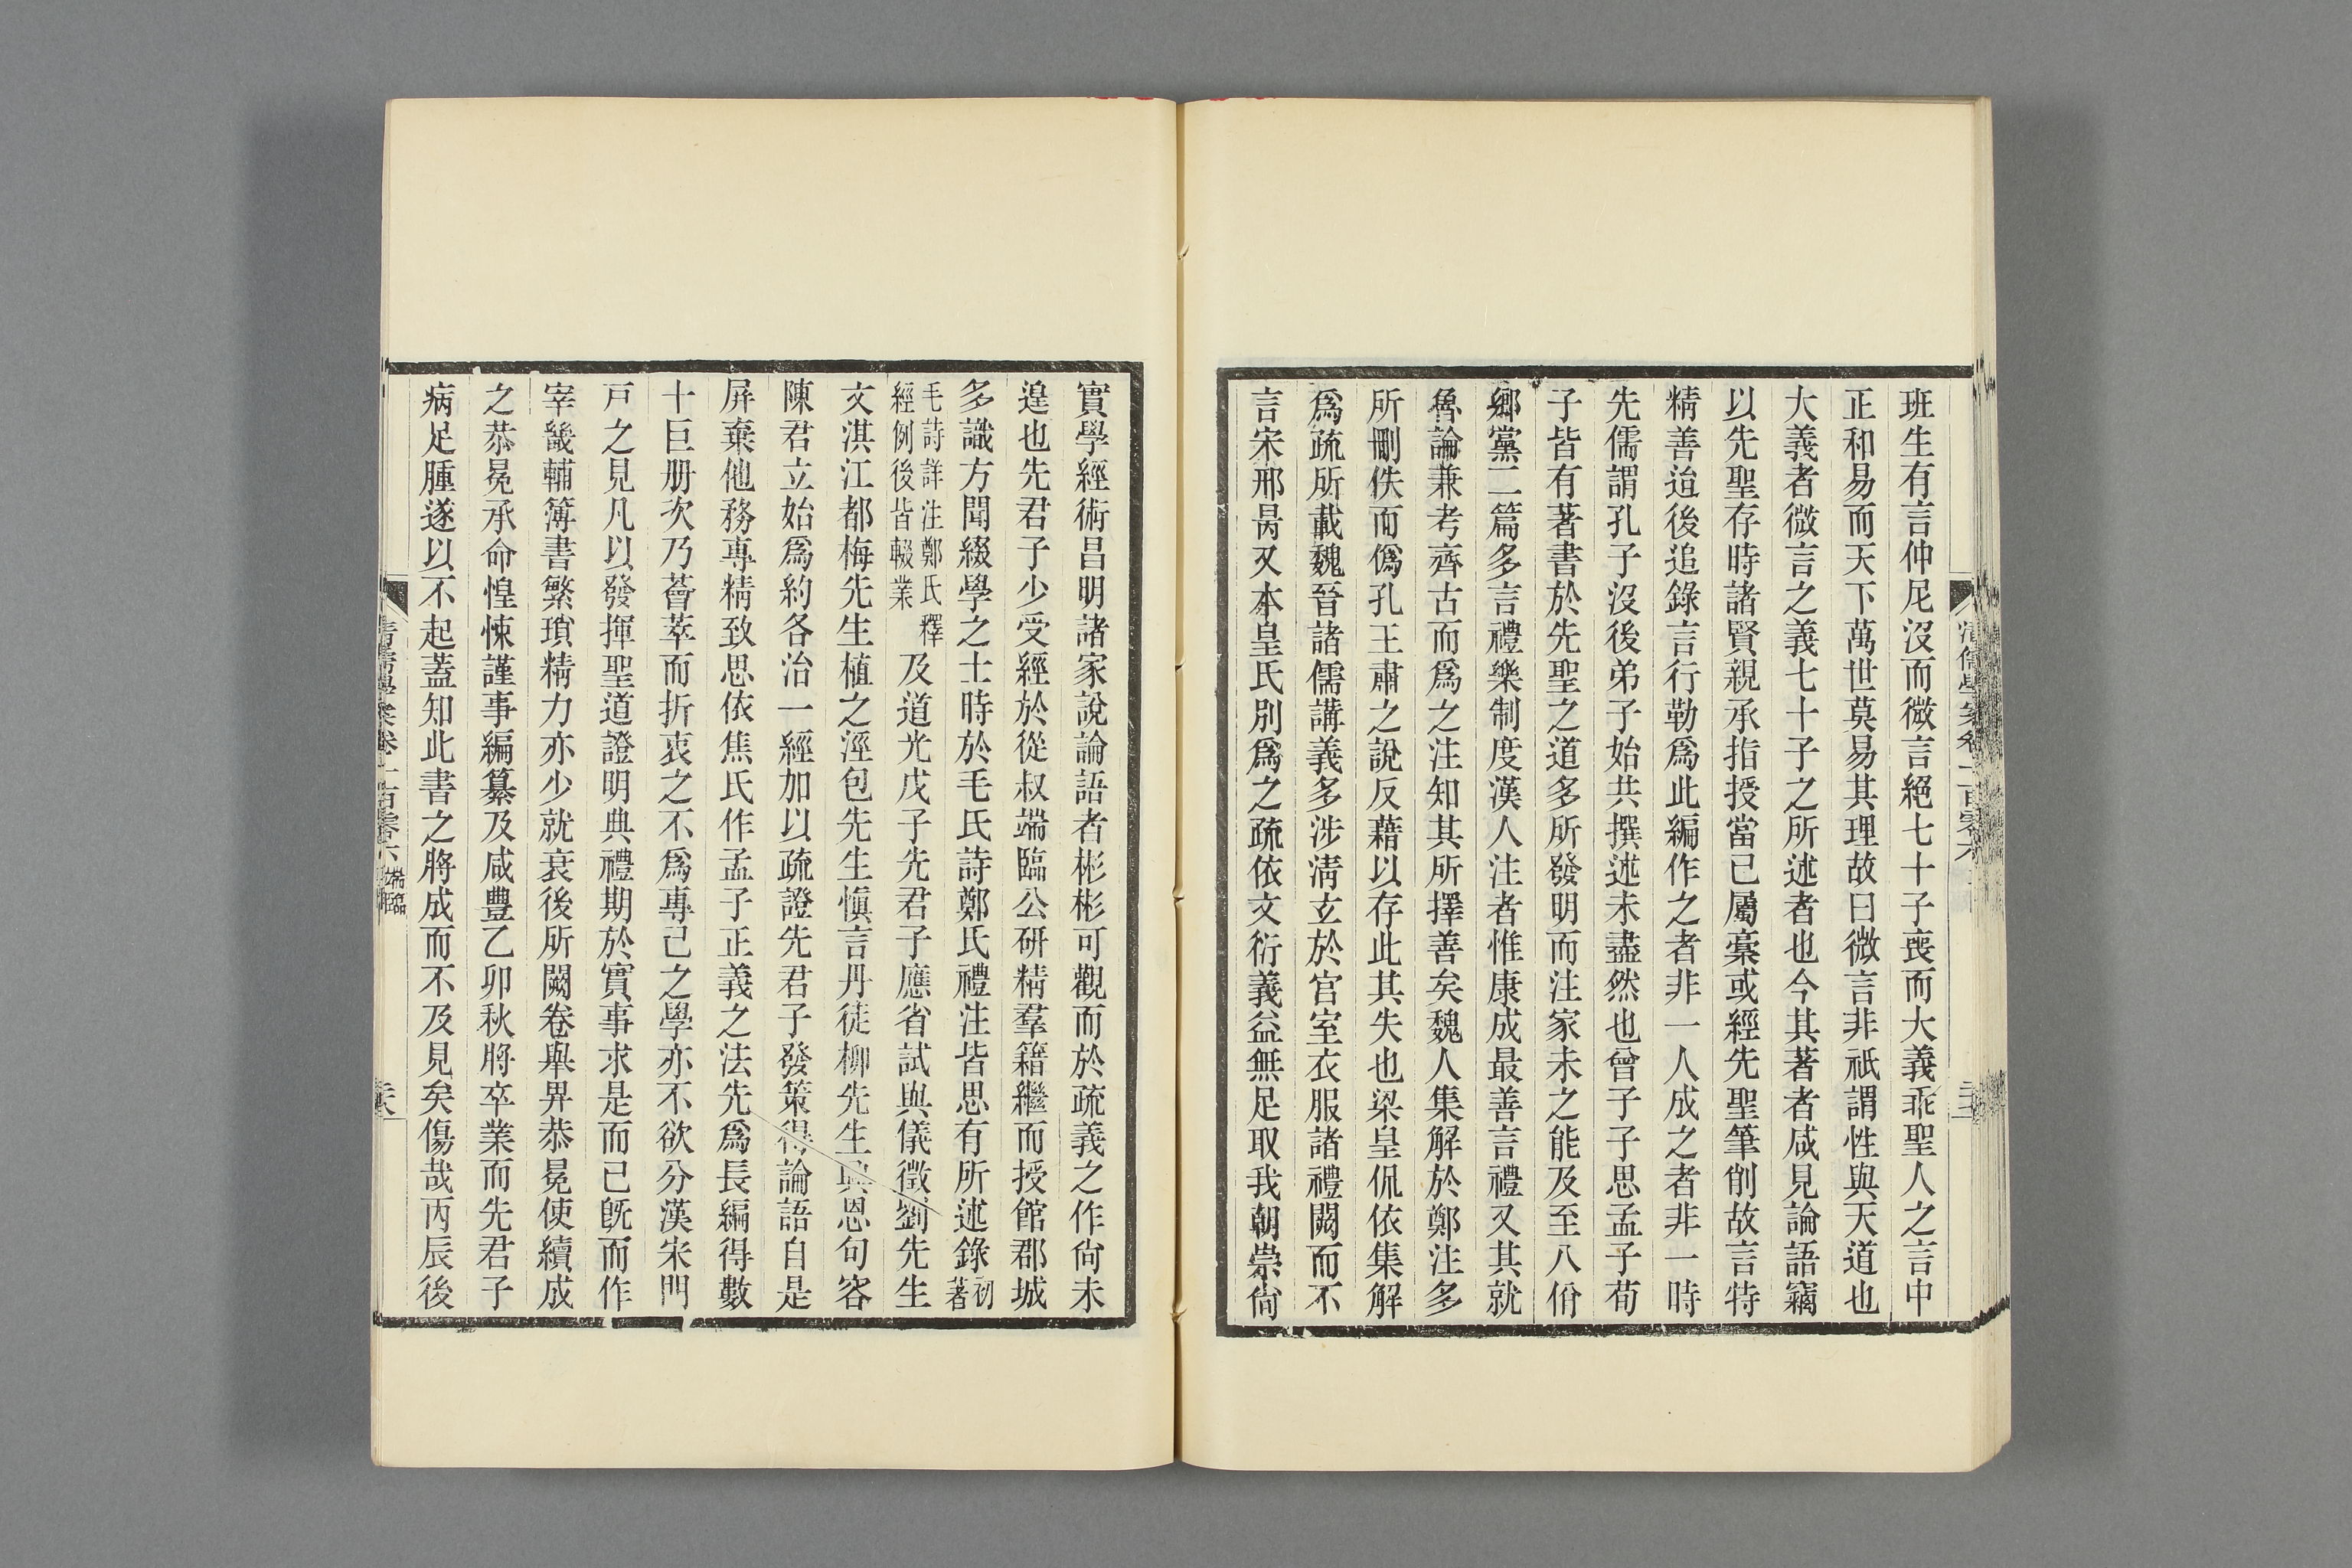 班生有言仲尼沒而微言絕七十子喪而大義乖聖人之言中
正和易而天下萬世莫易其理故曰微言非祇謂性與天道也
大義者微言之義七十子之所述者也今其著者咸見論語竊
以先聖存時諸賢親承指授當已屬稾或經先聖筆削故言特
精善迨後追錄言行勒爲此編作之者非一人成之者非一時
先儒謂孔子沒後弟子始共撰述未盡然也曾子子思孟子荀
子皆有著書於先聖之道多所發明而注家未之能及至八佾
鄉黨二篇多言禮樂制度漢人注者惟康成最善言禮又其就
魯論兼考齊古而爲之注知其所擇善矣魏人集解於鄭注多
所刪佚而僞孔王肅之說反藉以存此其失也梁皇侃依集解
爲疏所載魏晉諸儒講義多涉淸玄於宮室衣服諸禮闕而不
言宋邢昺又本皇氏別爲之疏依文衍義益無足取我朝崇尙
實學經術昌明諸家說論語者彬彬可觀而於疏義之作尙未
遑也先君子少受經於從叔端臨公研精羣籍繼而授館郡城
多識方聞綴學之士時於毛氏詩鄭氏禮注皆思有所述錄初著
毛詩詳注鄭氏釋經例後皆輟業及道光戊子先君子應省試與儀徵劉先生
文淇江都梅先生植之涇包先生愼言丹徒柳先生興恩句容
陳君立始爲約各治一經加以疏證先君子發策得論語自是
屏棄他務專精致思依焦氏作孟子正義之法先爲長編得數
十巨册次乃薈萃而折衷之不爲專己之學亦不欲分漢宋門
戸之見凡以發揮聖道證明典禮期於實事求是而已旣而作
宰畿輔簿書繁瑣精力亦少就衰後所闕卷舉畀恭冕使續成
之恭冕承命惶悚謹事編纂及咸豐乙卯秋將卒業而先君子
病足腫遂以不起蓋知此書之將成而不及見矣傷哉丙辰後
清儒學案卷一百零六 端臨